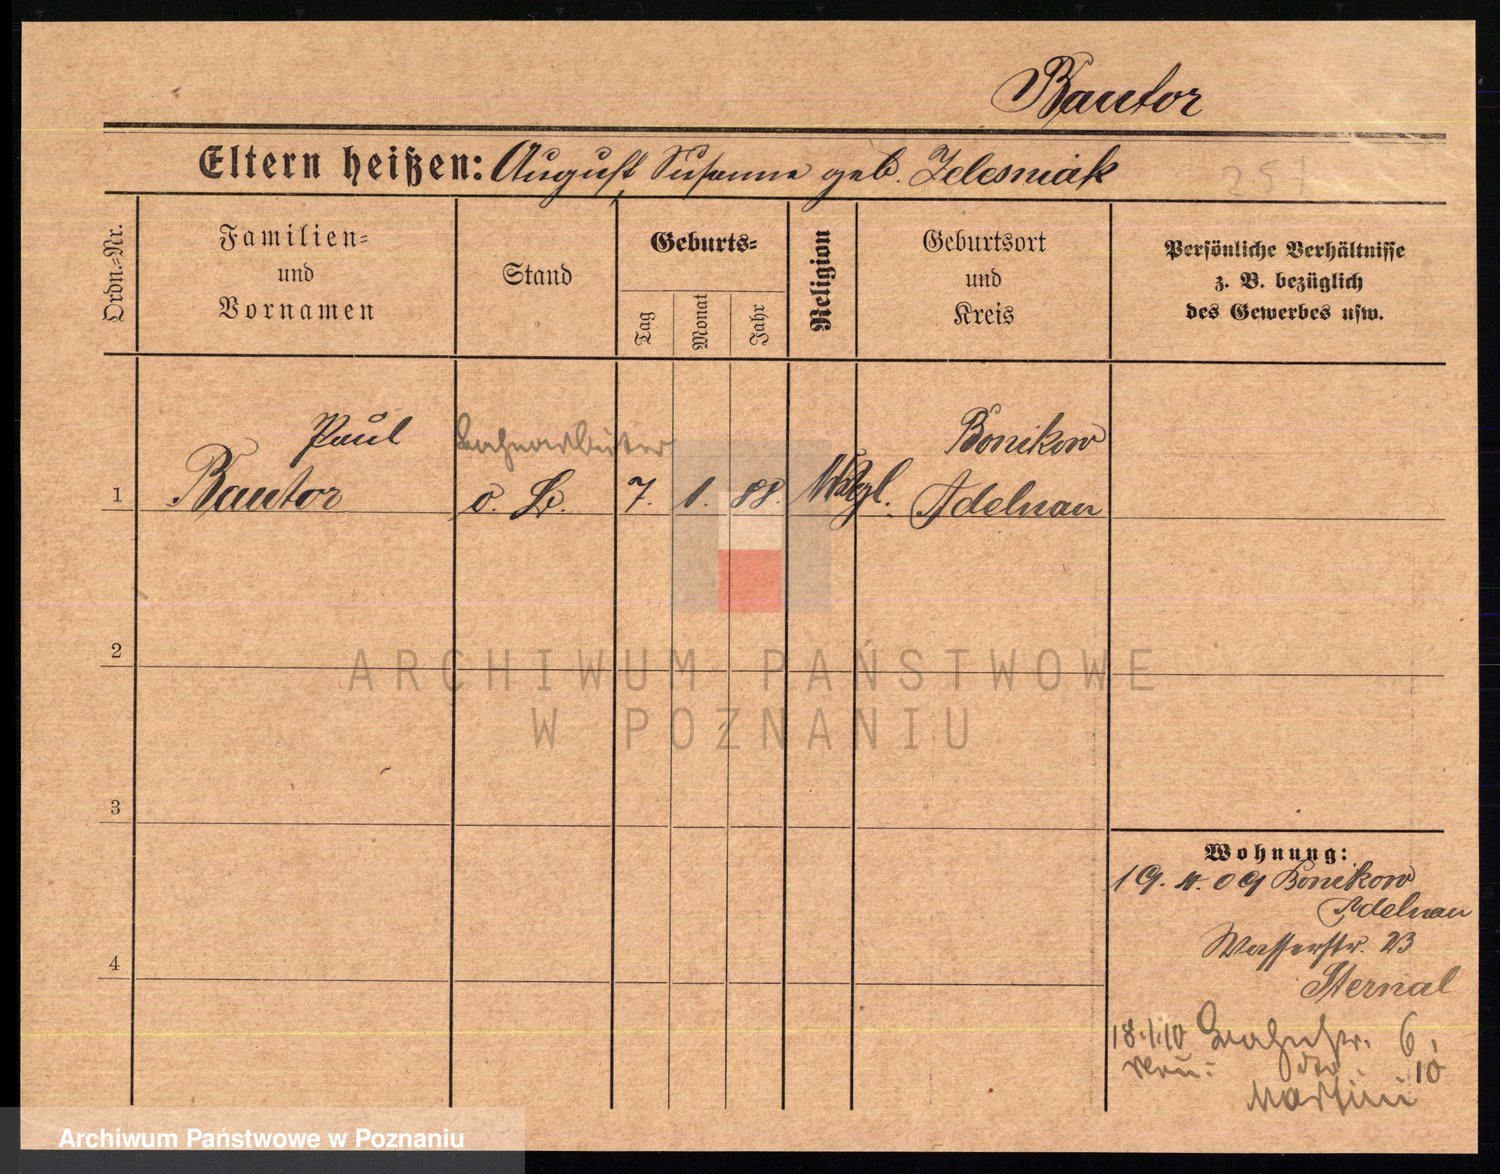 Bautor
Eltern heißen: August, Susanne geb. Zelesniak
257
Ordn.-Nr.
Familien-
und
Vornamen
Stand
Geburts-
Tag
Monat
Jahr
Religion
Geburtsort
und
Kreis
Persönliche Verhältnisse
z. B. bezüglich
des Gewerbes usw.
Paul
Bahnarbeiter
Bonikow
1
Bautor
o. B.
7.
1.
88.
Adelnau
2
ARCHIWUM PAŃSTWOWE
W POZNANIU
3
Wohnung:
19. 4. 09 Bonikow
Adelnau
Wasserstr. 23
4
Sternal
18.1.10 Bahnstr. 6.
dto 10
Martini
Archiwum Państwowe w Poznaniu